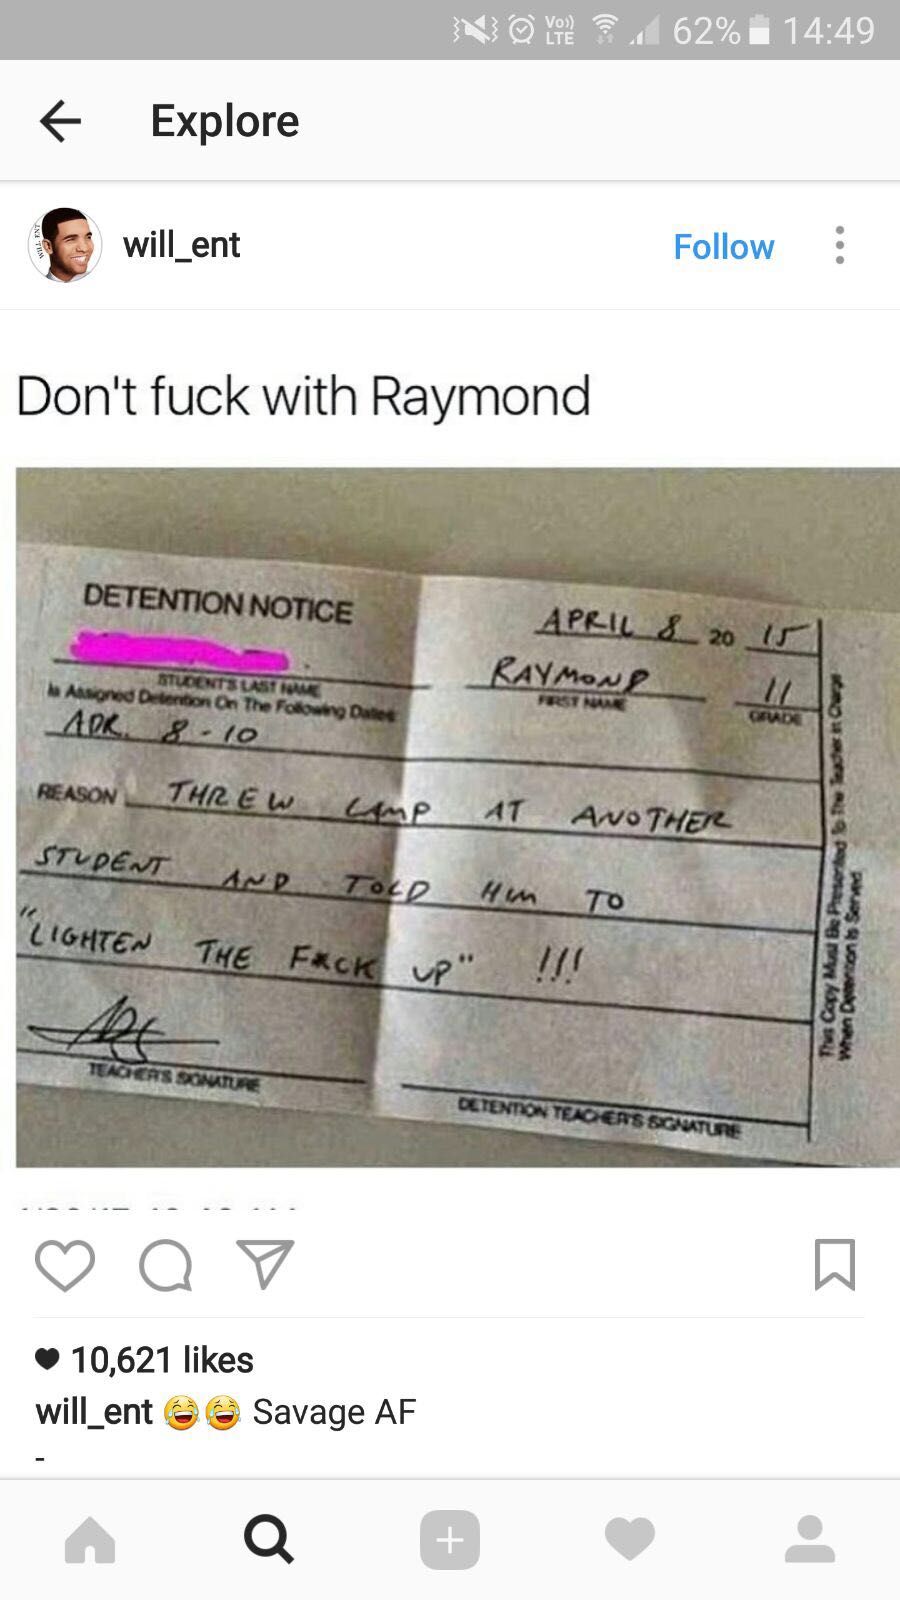 Vo)) LTE 62% 14:49
Explore
will_ent Follow
Don't fuck with Raymond
DETENTION NOTICE
APRIL 8 20 15
RAYMOND 11
STUDENT'S LAST NAME FIRST NAME GRADE
Is Assigned Detention On The Following Dates
APR. 8-10
REASON THREW LAMP AT ANOTHER
STUDENT AND TOLD HIM TO
"LIGHTEN THE F*CK UP" !!!
TEACHER'S SIGNATURE
DETENTION TEACHER'S SIGNATURE
This Copy Must Be Presented To The Teacher in Charge
When Detention Is Served
10,621 likes
will_ent 😂😂 Savage AF
-